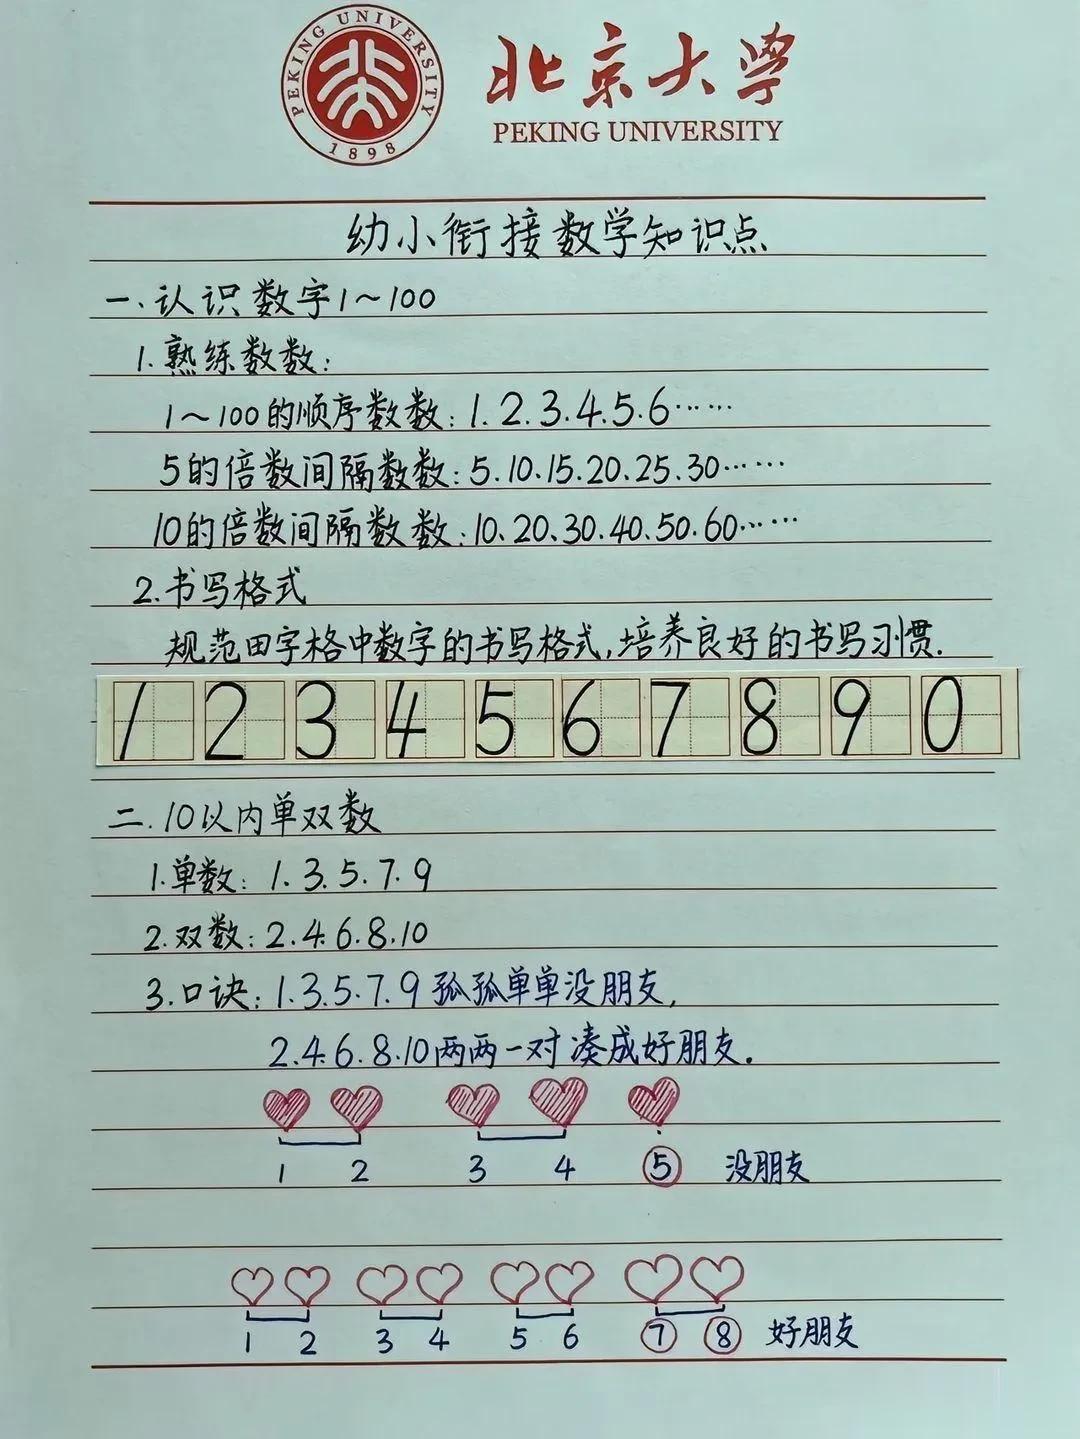 PEKING UNIVERSITY
1898
北京大学
PEKING UNIVERSITY
幼小衔接数学知识点
一.认识数字1~100
1.熟练数数:
1~100的顺序数数:1.2.3.4.5.6……
5的倍数间隔数数:5.10.15.20.25.30……
10的倍数间隔数数:10、20、30、40、50、60……
2.书写格式
规范田字格中数字的书写格式,培养良好的书写习惯.
1 2 3 4 5 6 7 8 9 0
二.10以内单双数
1.单数: 1.3.5.7.9
2.双数:2.4.6.8.10
3.口诀:1.3.5.7.9孤孤单单没朋友,
2.4.6.8.10两两一对凑成好朋友.
1 2 3 4 ⑤ 没朋友
1 2 3 4 5 6 ⑦ ⑧ 好朋友